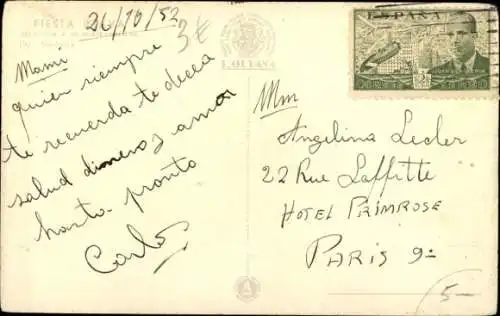 FIESTA
26/10/52
3€
Mami
quien siempre
te recuerda te decea
salud dinero y amor
hasta pronto
Carlos
ESPAÑA
Mm
Angelina Lecler
22 Rue Laffitte
HOTEL PRIMROSE
PARIS 9e
5-